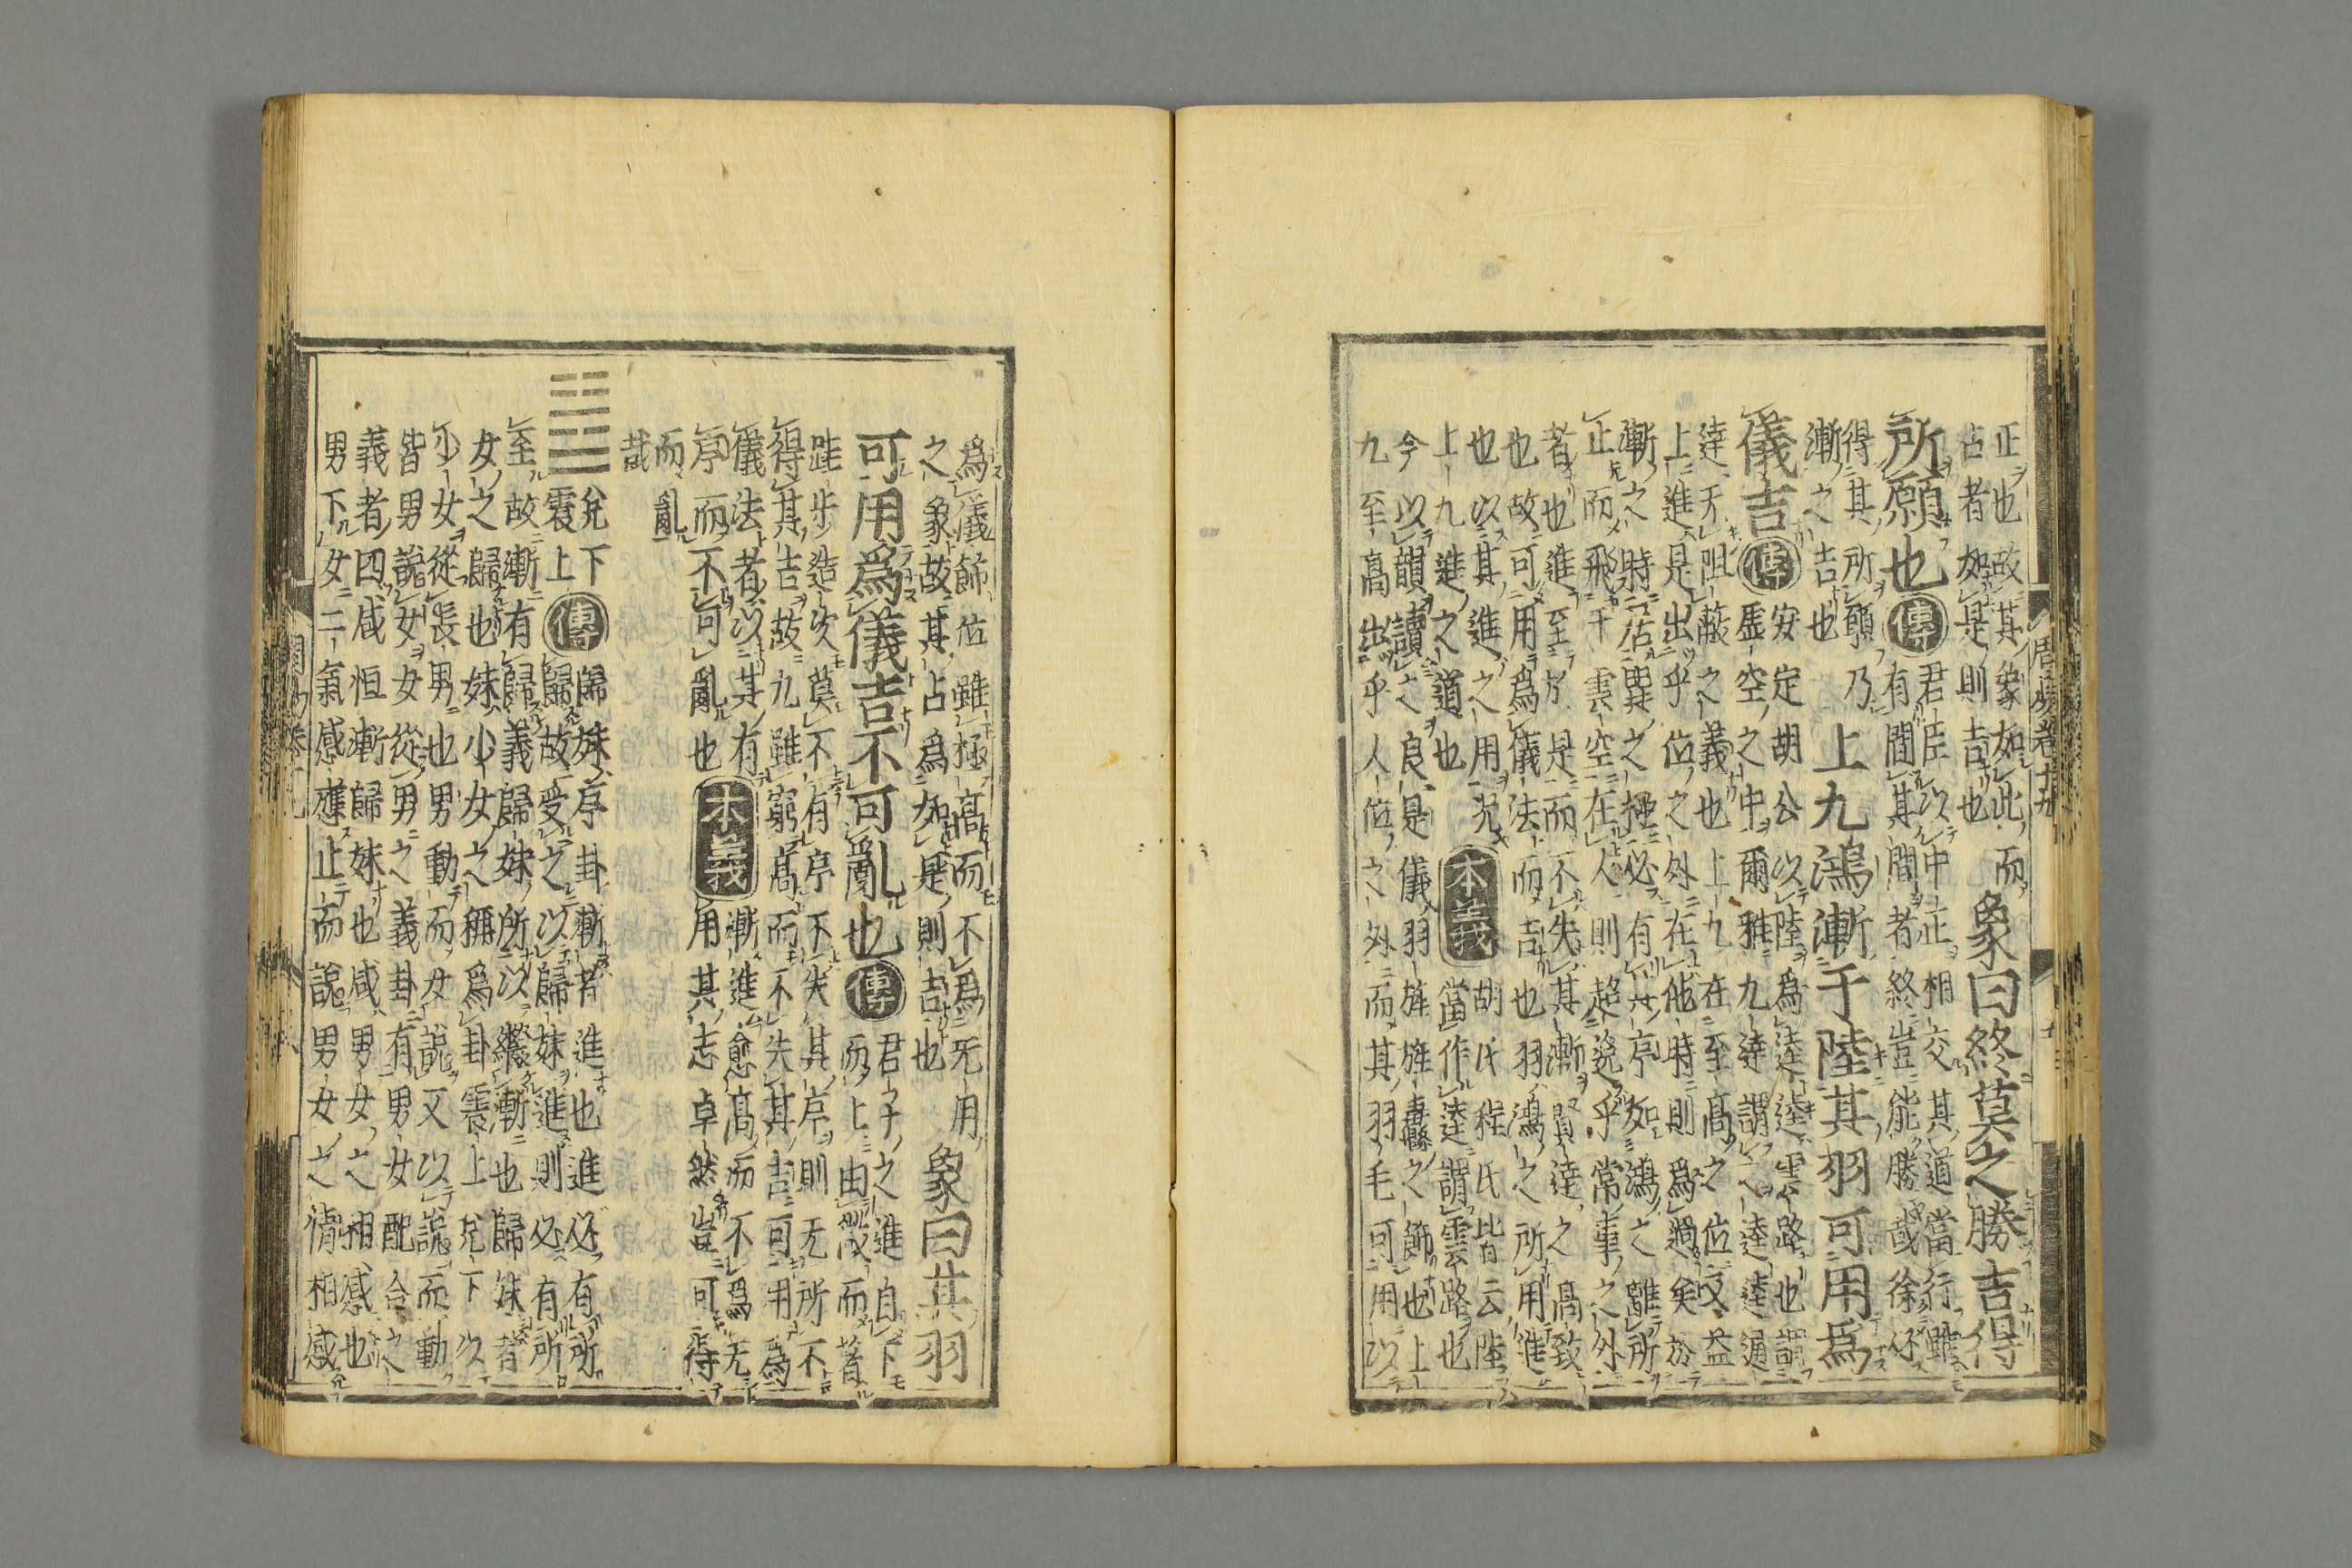 正也故其象如此而
占者如是則吉也
象曰終莫之勝吉得
所願也
傳
君臣以中正相交其道當行雖
有間其間者終豈能勝哉徐必
得其所願乃
漸之吉也
上九鴻漸于陸其羽可用為
儀吉
傳
安定胡公以陸為逵逵雲路也謂
虚空之中爾雅九達謂之逵逵通
達无阻蔽之義也上九在至高之位又益
上進是出乎位之外在他時則為過矣於
漸之時居巽之極必有其序如鴻之離所
止而飛于雲空在人則超逸乎常事之外
者也進至於是而不失其漸賢達之高致
也故可用為儀法而吉也羽鴻之所用進
也以其進之用况
上九進之道也
本義
胡氏程氏皆云陸
當作逵謂雲路也
今以韻讀之良是儀羽旄旌纛之飾也上
九至高出乎人位之外而其羽毛可用以
為儀飾位雖極高而不為无用
之象故其占為如是則吉也
象曰其羽
可用為儀吉不可亂也
傳
君子之進自下
而上由微而著
跬步造次莫不有序不失其序則无所不
得其吉故九雖窮高而不失其吉可用為
儀法者以其有
序而不可亂也
本義
漸進愈高而不為无
用其志卓然豈可得
而亂
哉
兌下
震上
傳
歸妹序卦漸者進也進必有所
歸故受之以歸妹進則必有所
至故漸有歸義歸妹所以繼漸也歸妹者
女之歸也妹少女之稱為卦震上兌下以
少女從長男也男動而女說又以說而動
皆男說女女從男之義卦有男女配合之
義者四咸恒漸歸妹也咸男女之相感也
男下女二氣感應止而說男女之情相感